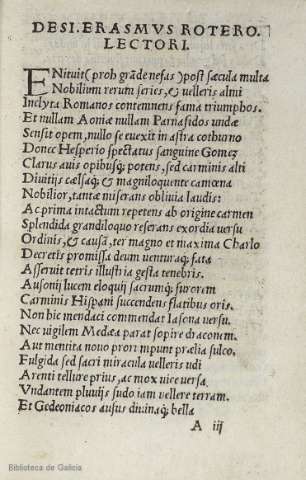 DESI. ERASMVS ROTERO.
LECTORI.
ENituit (proh grãde nefas) post sæcula multa
Nobilium rerum series, & uelleris almi
Inclyta Romanos contemnens fama triumphos.
Et nullam Aoniæ nullam Parnasidos undæ
Sensit opem, nullo se euexit in astra cothurno
Donec Hesperio spectatus sanguine Gomez
Clarus auis opibusq; potens, sed carminis alti
Diuitijs cælsaq; & magniloquente camœna
Nobilior, tantæ miserans obliuia laudis:
Ac prima intactum repetens ab origine carmen
Splendida grandiloquo reserans exordia versu
Ordinis, & causã, ter magno et maxima Charlo
Decretis promissa deum venturaq; fata
Asseruit tetris illustria gesta tenebris.
Ausonij lucem eloquij sacrumq; furorem
Carminis Hispani succendens flatibus oris.
Non hic mendaci commendat Iasona versu.
Nec uigilem Medæa parat sopire draconem.
Aut mentita nouo prorumpunt prælia sulco.
Fulgida sed sacri miracula uelleris udi
Arenti tellure prius, ac mox vice versa
Vndantem pluuijs sudo iam vellere terram.
Et Gedeoniacos ausus diuinaq; bella
A iij
Biblioteca de Galicia